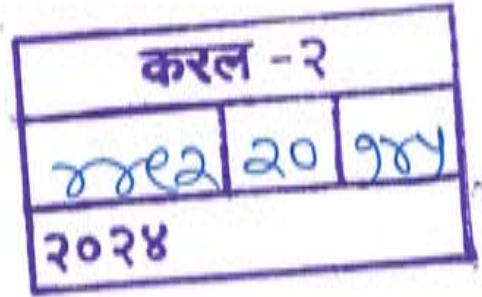 करल - २
४४९२ २० १४५
२०२४